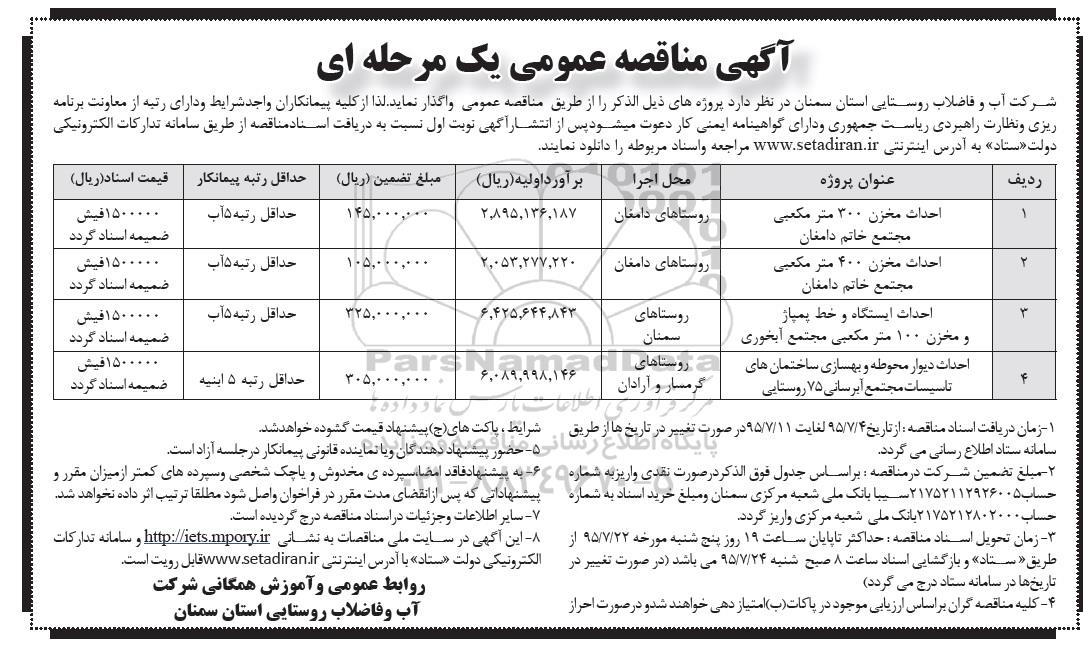 آگهی مناقصه عمومی یک مرحله ای
شرکت آب و فاضلاب روستایی استان سمنان در نظر دارد پروژه های ذیل الذکر را از طریق مناقصه عمومی واگذار نماید.لذا ازکلیه پیمانکاران واجدشرایط ودارای رتبه از معاونت برنامه
ریزی ونظارت راهبردی ریاست جمهوری ودارای گواهینامه ایمنی کار دعوت میشودپس از انتشارآگهی نوبت اول نسبت به دریافت اسنادمناقصه از طریق سامانه تدارکات الکترونیکی
دولت«ستاد» به آدرس اینترنتی www.setadiran.ir مراجعه واسناد مربوطه را دانلود نمایند.
ردیف عنوان پروژه محل اجرا برآورداولیه(ریال) مبلغ تضمین (ریال) حداقل رتبه پیمانکار قیمت اسناد(ریال)
۱ احداث مخزن ۳۰۰ متر مکعبی روستاهای دامغان ۲,۸۹۵,۱۳۶,۱۸۷ ۱۴۵,۰۰۰,۰۰۰ حداقل رتبه۵آب ۱۵۰۰۰۰۰فیش
مجتمع خاتم دامغان ضمیمه اسناد گردد
۲ احداث مخزن ۴۰۰ متر مکعبی روستاهای دامغان ۲,۰۵۳,۲۷۷,۲۲۰ ۱۰۵,۰۰۰,۰۰۰ حداقل رتبه۵آب ۱۵۰۰۰۰۰فیش
مجتمع خاتم دامغان ضمیمه اسناد گردد
۳ احداث ایستگاه و خط پمپاژ روستاهای ۶,۴۲۵,۶۴۴,۸۴۳ ۳۲۵,۰۰۰,۰۰۰ حداقل رتبه۵آب ۱۵۰۰۰۰۰فیش
و مخزن ۱۰۰ متر مکعبی مجتمع آبخوری سمنان ضمیمه اسناد گردد
۴ احداث دیوار محوطه و بهسازی ساختمان های روستاهای ۶,۰۸۹,۹۹۸,۱۴۶ ۳۰۵,۰۰۰,۰۰۰ حداقل رتبه ۵ ابنیه ۱۵۰۰۰۰۰فیش
تاسیسات مجتمع آبرسانی ۷۵ روستایی گرمسار و آرادان ضمیمه اسناد گردد
ParsNamadData
مرکز فرآوری اطلاعات پارس نماد داده ها
پایگاه اطلاع رسانی مناقصه و مزایده
۰۲۱-۸۸۳۴۹۶۷۰-۵
۱-زمان دریافت اسناد مناقصه : ازتاریخ۹۵/۷/۴ لغایت ۹۵/۷/۱۱در صورت تغییر در تاریخ ها از طریق
سامانه ستاد اطلاع رسانی می گردد.
۲-مبلغ تضمین شرکت درمناقصه : براساس جدول فوق الذکردرصورت نقدی واریزبه شماره
حساب۲۱۷۵۲۱۱۲۹۲۶۰۰۵سیبا بانک ملی شعبه مرکزی سمنان ومبلغ خرید اسناد به شماره
حساب۲۱۷۵۲۱۲۸۰۲۰۰۰بانک ملی شعبه مرکزی واریز گردد.
۳-زمان تحویل اسناد مناقصه : حداکثر تاپایان ساعت ۱۹ روز پنج شنبه مورخه ۹۵/۷/۲۲ از
طریق« ستاد» و بازگشایی اسناد ساعت ۸ صبح شنبه ۹۵/۷/۲۴ می باشد (در صورت تغییر در
تاریخ‌ها در سامانه ستاد درج می گردد)
۴-کلیه مناقصه گران براساس ارزیابی موجود در پاکات(ب)امتیاز دهی خواهند شدو درصورت احراز
شرایط ، پاکت های(ج)پیشنهاد قیمت گشوده خواهدشد.
۵-حضور پیشنهاد دهندگان ویا نماینده قانونی پیمانکار درجلسه آزاد است.
۶-به پیشنهادفاقد امضاسپرده ی مخدوش و یاچک شخصی وسپرده های کمتر ازمیزان مقرر و
پیشنهاداتی که پس ازانقضای مدت مقرر در فراخوان واصل شود مطلقا ترتیب اثر داده نخواهد شد.
۷-سایر اطلاعات وجزئیات دراسناد مناقصه درج گردیده است.
۸-این آگهی در سایت ملی مناقصات به نشانی http://iets.mpory.ir و سامانه تدارکات
الکترونیکی دولت «ستاد» با آدرس اینترنتی www.setadiran.irقابل رویت است.
روابط عمومی وآموزش همگانی شرکت
آب وفاضلاب روستایی استان سمنان